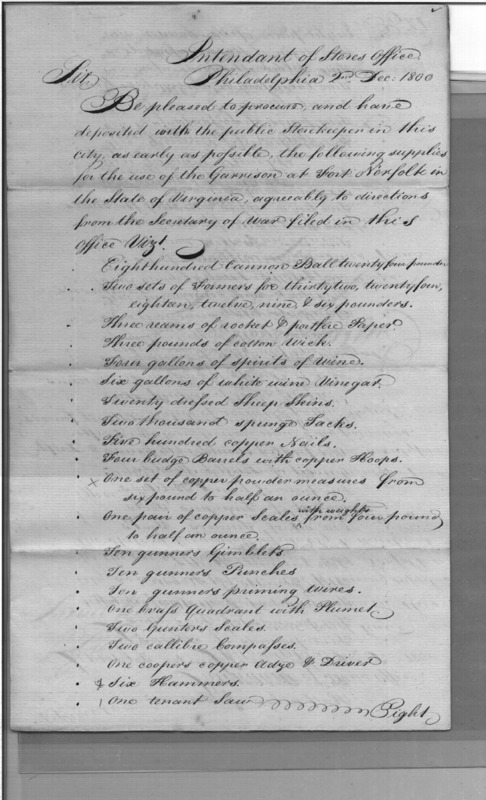 Intendant of Stores Office
Philadelphia 2nd Dec: 1800
Sir.
Be pleased to procure, and have
deposited with the public Storekeeper in this
city, as early as possible, the following supplies
for the use of the Garrison at Fort Norfolk in
the State of Virginia, agreeably to directions
from the Secretary of War filed in this
Office Vizt.
Eight hundred Cannon Ball twenty four pounder
Two sets of Formers for thirty two, twenty four,
eighteen, twelve, nine, & six pounders.
Three reams of rocket & portfire Paper
Three pounds of cotton Wick.
Four gallons of spirits of Wine.
Six gallons of white wine Vinegar.
Twenty dressed Sheep Skins.
Two thousand spunge Tacks.
Five hundred copper Nails.
Four budge Barrels with copper Hoops.
x One set of copper powder measures from
six pound to half an ounce.
One pair of copper Scales with weights from four pound
to half an ounce.
Ten gunners Gimblets
Ten gunners Punches
Ten gunners priming Wires.
One brass Quadrant with Plumet.
Two Gunters Scales.
Two callibre Compasses.
One coopers copper Adze & Driver
Six Hammers.
One tenant Saw
Eight